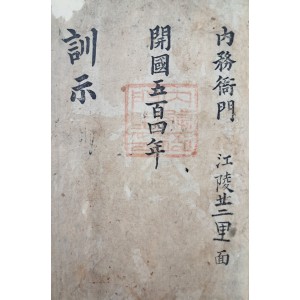 內務衙門 江陵廿二里面
開國五百四年
訓示